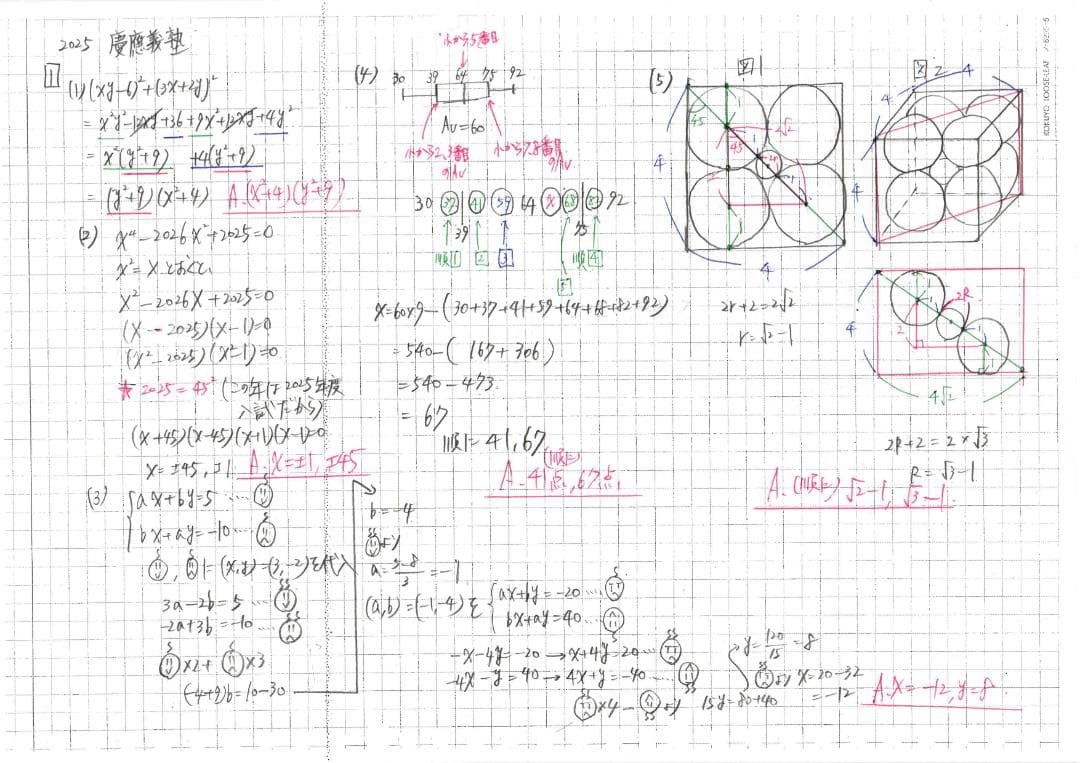 2025 慶應義塾
1
(1) (xy-6)²+(3x+2y)²
= x²y²-12xy+36+9x²+12xy+4y²
= x²(y²+9) +4(y²+9)
= (y²+9)(x²+4) A.(x²+4)(y²+9)
(2) x⁴-2026x²+2025=0
x²=Xとおくと、
X²-2026X+2025=0
(X-2025)(X-1)=0
(x²-2025)(x²-1)=0
★2025=45² (この年は2025年度
入試だから)
(x+45)(x-45)(x+1)(x-1)=0
x=±45,±1 A.x=±1,±45
(3) ax+by=5 …
bx+ay=-10 …
, に(x,y)=(3,-2)を代入
3a-2b=5 …
-2a+3b=-10 …
×2+ ×3
(-4+9)b=10-30
b=-4
より
a=5-8/3=-1
(a,b)=(-1,-4)を
ax+by=-20 …
bx+ay=40 …
-x-4y=-20→x+4y=20 …
-4x-y=40→4x+y=-40 …
×4- より 15y=80+40
y=120/15=8
より x=20-32
=-12
A.x=-12,y=8
(4)
小から5番目
30 39 64 75 92
Av=60
小から2,3番目
のAv
小から7,8番目
のAv
30 37 41 59 64 x 68 82 92
39 75
順1 2 3 5 順4
x=60×9-(30+37+41+59+64+68+82+92)
=540-(167+306)
=540-473
=67
順に41,67
(順に)
A.41点,67点
(5)
図1
4
45
2√2
45
2r
1
2
1
4
4
2r+2=2√2
r=√2-1
図2
4
4
4
4
1
2R
2
1
4√2
2R+2=2×√3
R=√3-1
A.(順に)√2-1, √3-1
KOKUYO LOOSE-LEAF